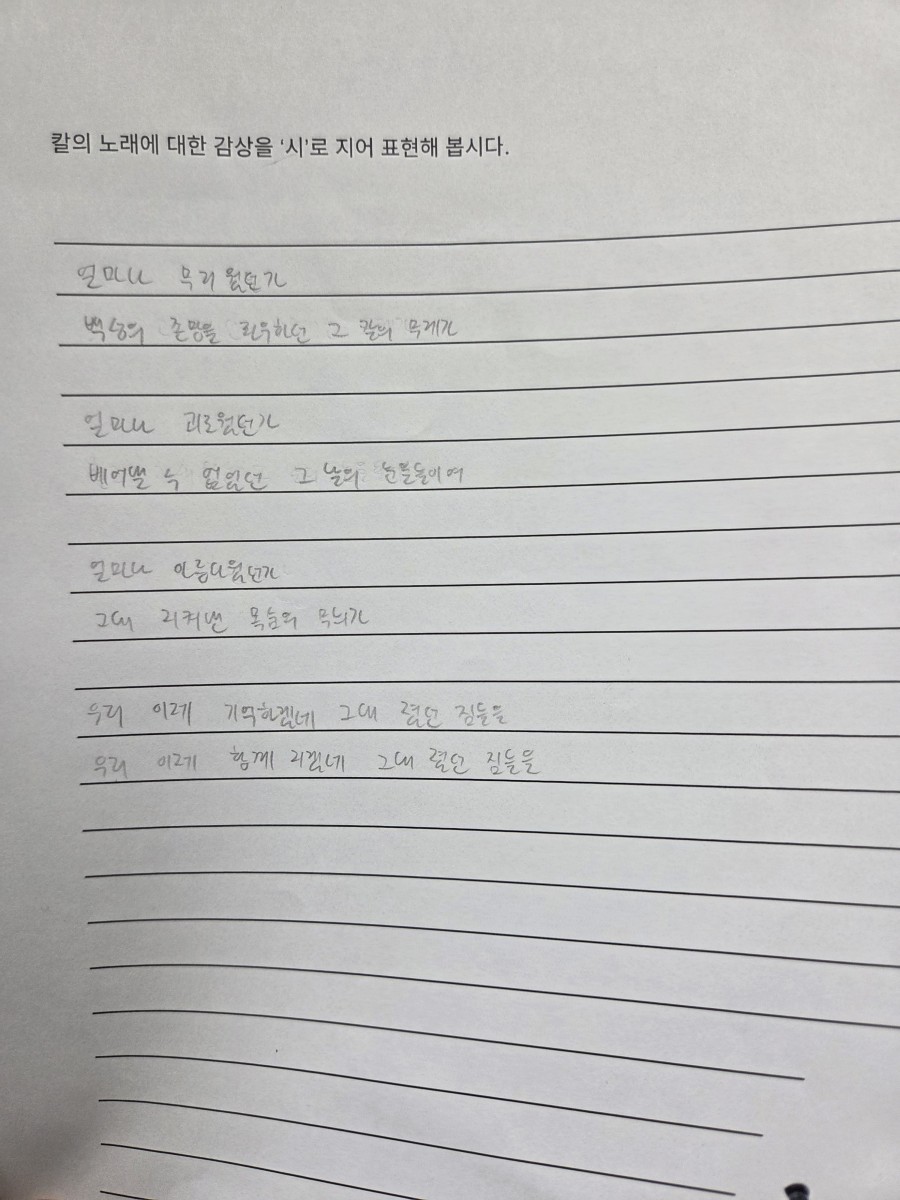 칼의 노래에 대한 감상을 '시'로 지어 표현해 봅시다.
얼마나 무거웠던가
백성의 존망을 좌우하던 그 칼의 무게가
얼마나 괴로웠던가
베어낼 수 없었던 그 날의 눈물들이여
얼마나 아름다웠던가
그대 지켜낸 목숨의 무늬가
우리 이제 기억하겠네 그대 졌던 짐들을
우리 이제 함께 지겠네 그대 졌던 짐들을